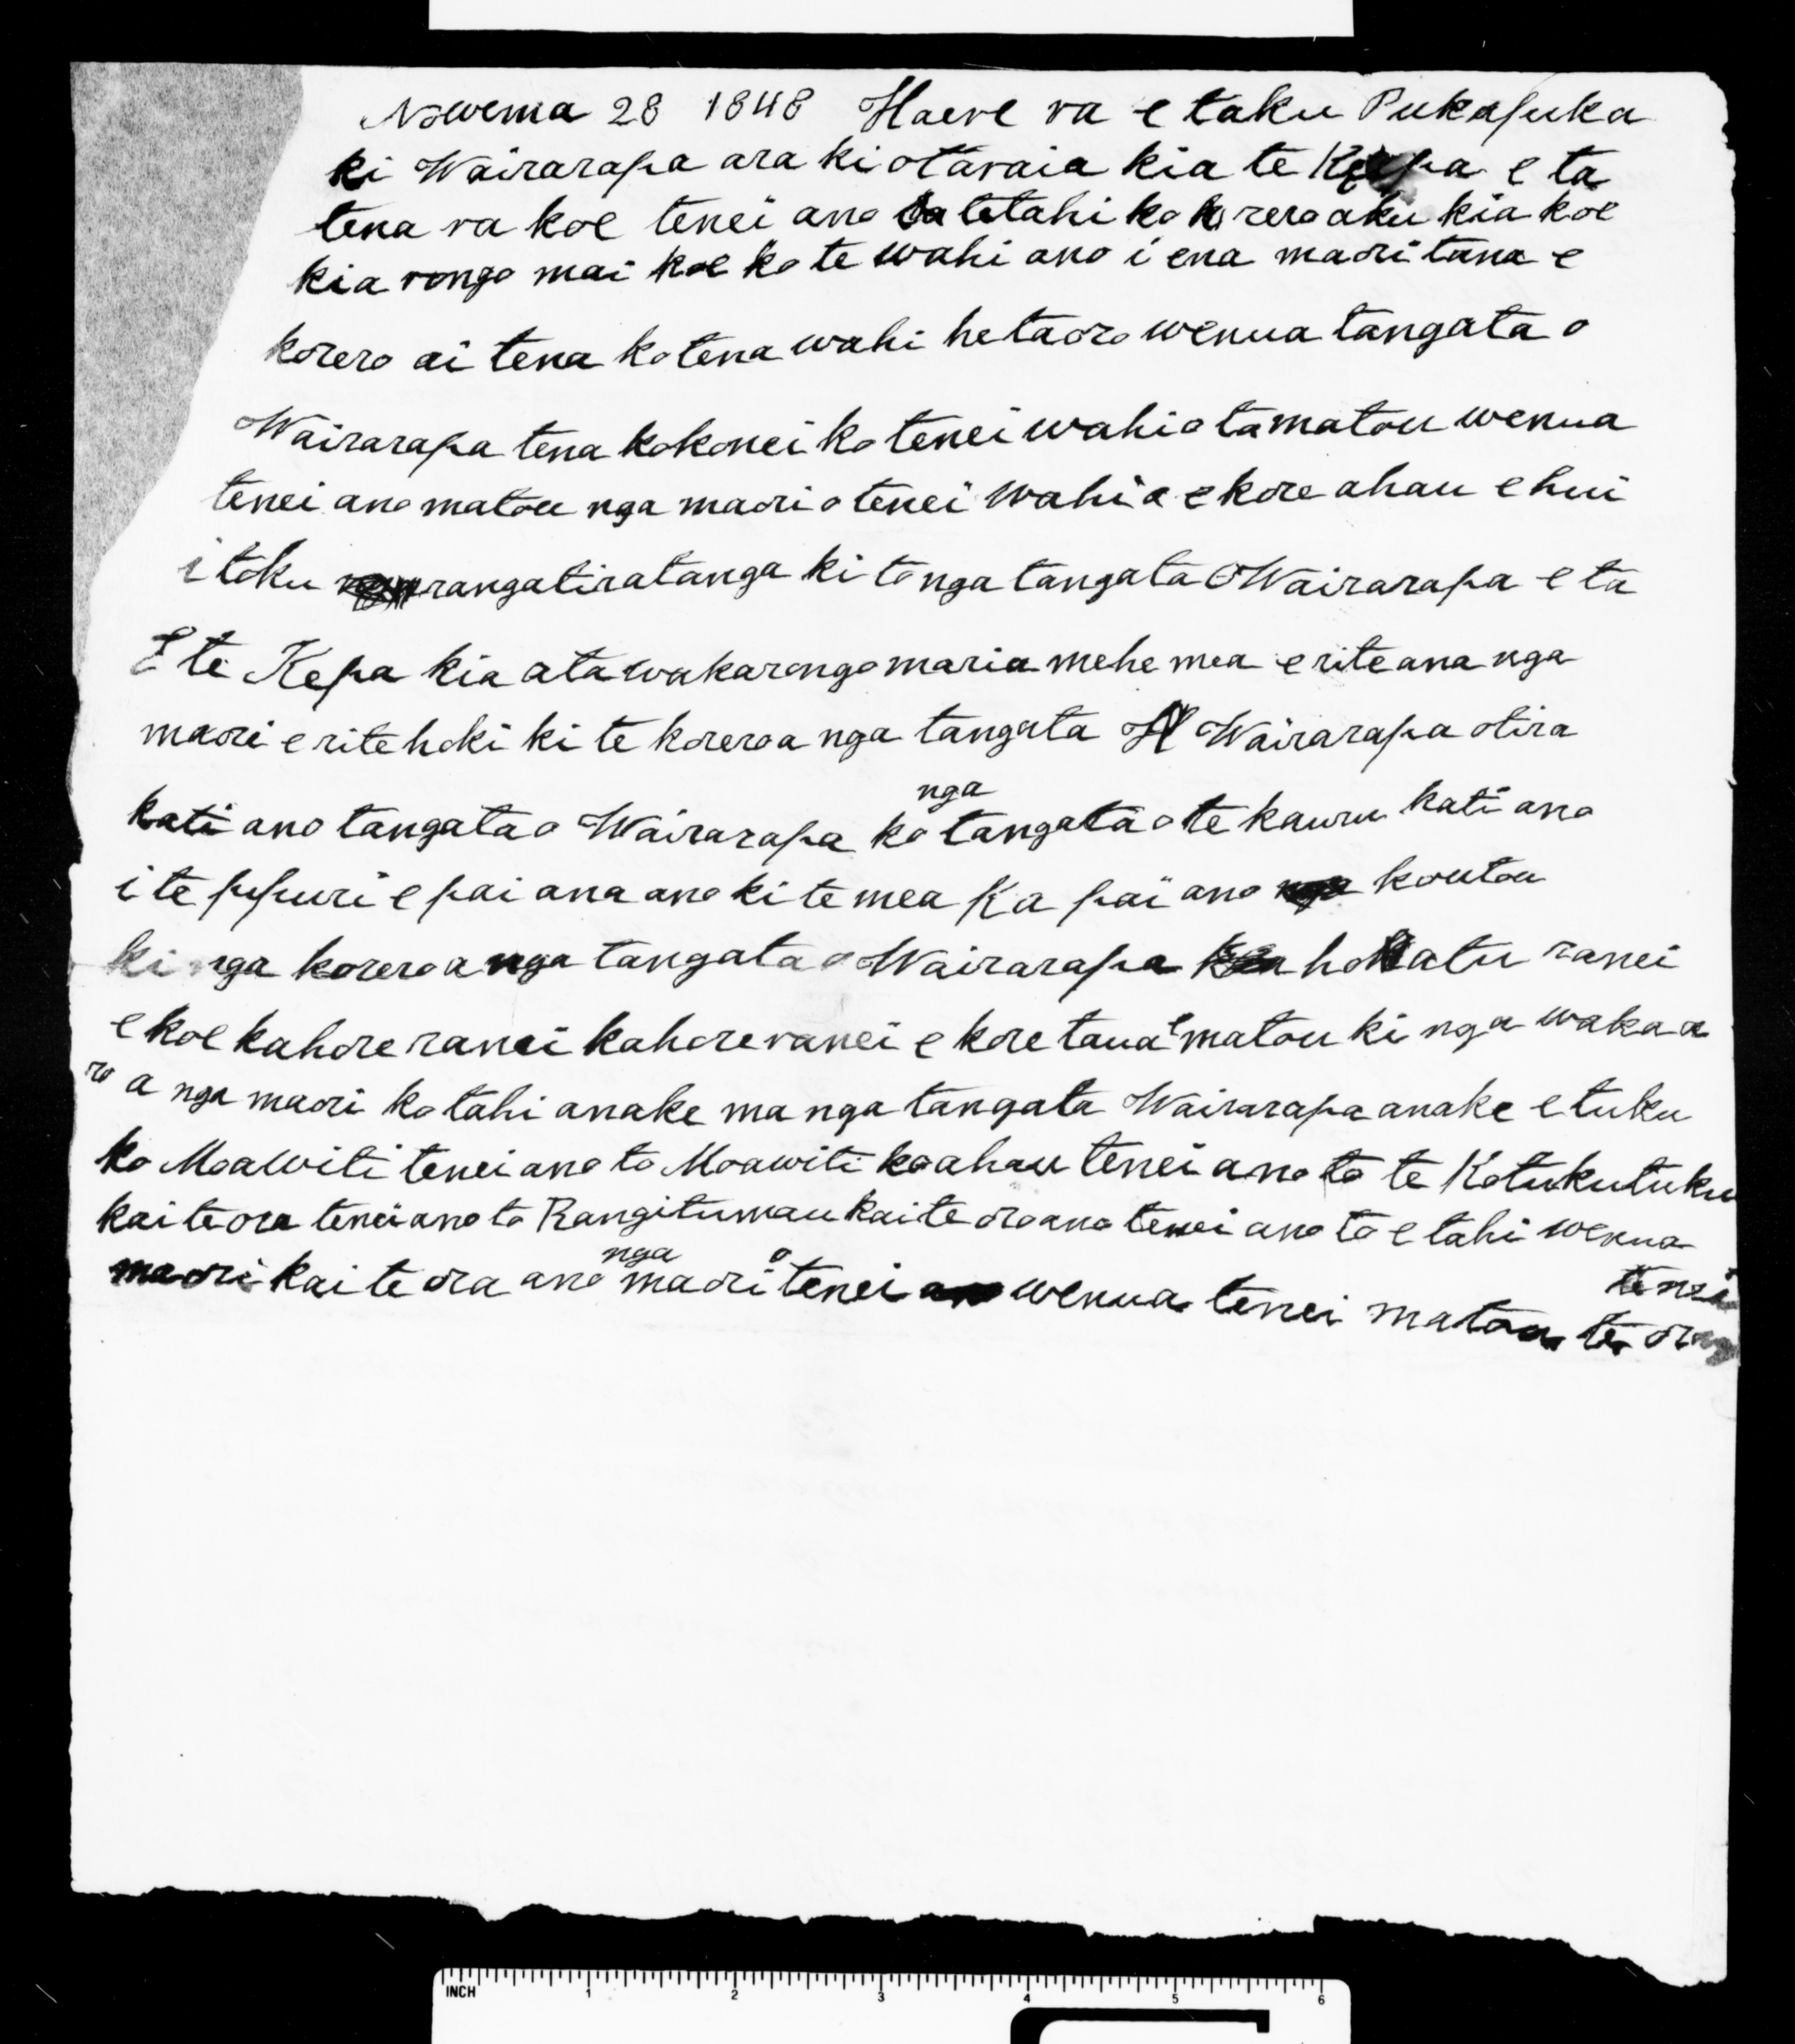 Nowema 28 1848 Haere ra e taku Pukapuka
ki Wairarapa ara ki otaraia kia te Kepa e ta
tena ra koe tenei ano ta tetahi ko korero aku kia koe
kia rongo mai koe ko te wahi ano i ena maori tana e
korero ai tena ko tena wahi he taoro wenua tangata o
Wairarapa tena kokonei ko tenei wahi o ta matou wenua
tenei ano matou nga maori o tenei wahi a e kore ahau e hui
i toku rangatiratanga ki to nga tangata O Wairarapa e ta
E te Kepa kia ata wakarongo maria mehe mea e rite ana nga
maori e rite hoki ki te korero a nga tangata Wairarapa otira
kati ano tangata o Wairarapa ko nga tangata o te kauru kati ano
i te pupuri e pai ana ano ki te mea Ka pai ano koutou
ki nga korero a nga tangata o Wairarapa hokatu ranei
e koe kahore ranei kahore ranei e kore taua e matou ki nga waka a
ro a nga maori ko tahi anake ma nga tangata Wairarapa anake e tuku
ko Moawiti tenei ano to Moawiti ko ahau tenei ano to te Kotukutuku
kai te ora tenei ano to Rangitumau kai te ora ano tenei ano to e tahi wenua
maori kai te ora ano nga maori o tenei wenua tenei matou te
tenei
INCH 1 2 3 4 5 6